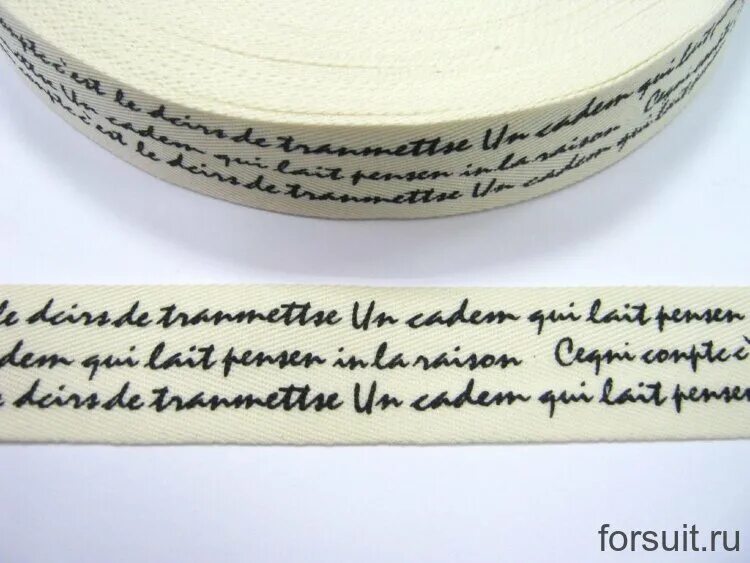 compte c'est le dcirs de tranmettse Un cadem qui lait
Un cadem qui lait pensen in la raison Cegni
c'est le dcirs de tranmettse Un cadem qui lait
le dcirs de tranmettse Un cadem qui lait pensen
dem qui lait pensen in la raison Cegni conpte c'
e dcirs de tranmettse Un cadem qui lait pensen
forsuit.ru